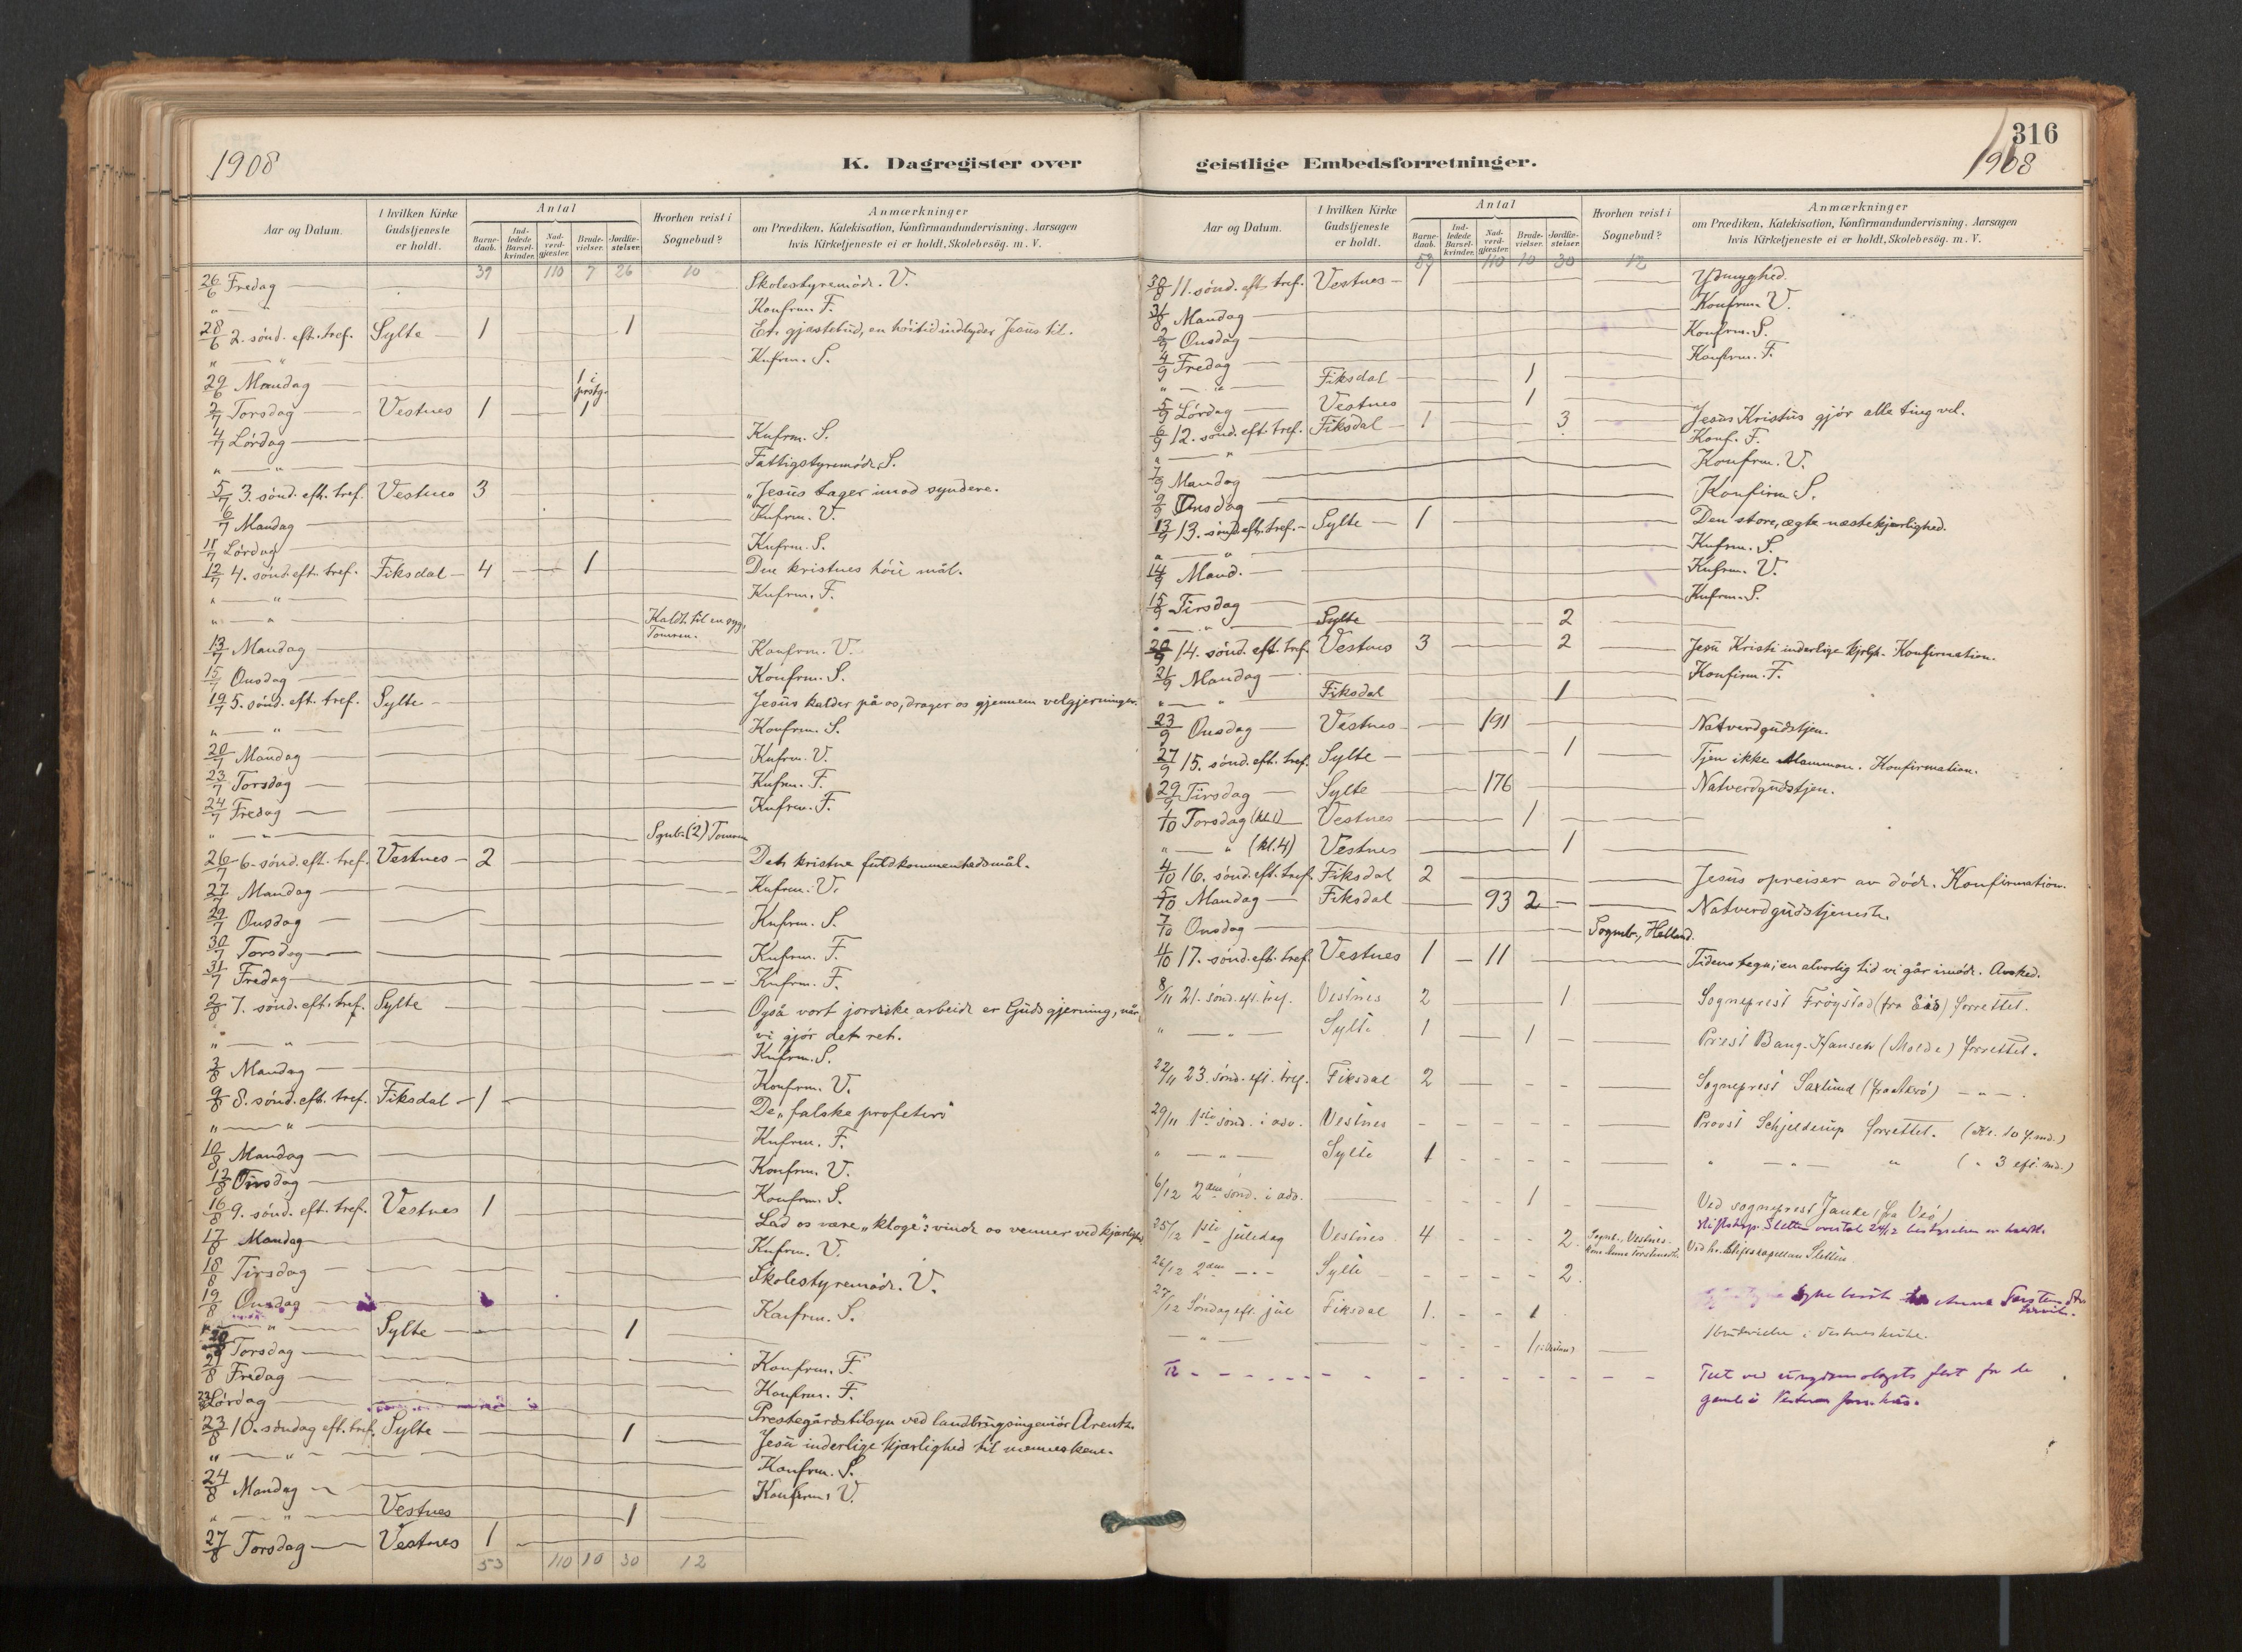 1908
K. Dagregister over
Aar og Datum.
I hvilken Kirke Gudstjeneste er holdt.
Antal
Barne-daab.
Ind-ledede Barsel-kvinder.
Nad-verd-gjæster.
Brude-vielser.
Jordfæ-stelser.
Hvorhen reist i Sognebud?
Anmærkninger
om Prædiken, Katekisation, Konfirmandundervisning. Aarsagen
hvis Kirketjeneste ei er holdt, Skolebesög. m. V.
39 110 7 26 10
26/6 Fredag Skolestyremöde. V.
" " Konfrm F.
28/6 2. sönd. eft. tref. Sylte 1 1 Et gjæstebud, en höitid indbyder Jesus til.
" " Knfrm. S.
29/6 Mandag 1 i prstg.
2/7 Torsdag Vestnes 1 1
4/7 Lördag Knfrm. S.
" " Fattigstyremöde S.
5/7 3. sönd. eft. tref. Vestnes 3 "Jesus tager imod syndere.
6/7 Mandag Knfrm. V.
11/7 Lördag Knfrm. S.
12/7 4. sönd. eft. tref. Fiksdal 4 1 Den kristnes höie mål.
" " Knfrm. F.
" " Kaldt til en syg, Tomren.
13/7 Mandag Konfrm. V.
15/7 Onsdag Konfrm. S.
19/7 5. sönd. eft. tref. Sylte Jesus kalder på os, drager os gjennem velgjerninger.
" " Konfrm. S.
20/7 Mandag Knfrm. V.
23/7 Torsdag Knfrm. F.
24/7 Fredag Knfrm. F.
" " Sgnb. (2) Tomren
26/7 6. sönd. eft. tref. Vestnes 2 Det kristne fuldkommenhedsmål.
27/7 Mandag Knfrm. V.
29/7 Onsdag Knfrm. S.
30/7 Torsdag Knfrm. F.
31/7 Fredag Knfrm. F.
2/8 7. sönd. eft. tref. Sylte Også vort jordiske arbeide er Guds gjerning, når
vi gjör det ret.
" " Knfrm. S.
3/8 Mandag Konfrm. V.
9/8 8. sönd. eft. tref. Fiksdal 1 De "falske profeter"
" " Knfrm. F.
10/8 Mandag Konfrm. V.
12/8 Onsdag Konfrm. S.
16/8 9. sönd. eft. tref. Vestnes 1 Lad os være "kloge": vinde os venner ved kjærlighed
17/8 Mandag Knfrm. V.
18/8 Tirsdag Skolestyremöde. V.
19/8 Onsdag Konfrm. S.
" " Sylte 1
20/8 Torsdag Konfrm. F.
21/8 Fredag Konfrm. F.
Lördag Prestegårdstilsyn ved landbrugsingeniör Arentz.
23/8 10. söndag eft. tref. Sylte 1 Jesu inderlige kjærlighed til menneskene.
" " Konfrm. S.
24/8 Mandag Konfrm. V.
" " Vestnes 1
27/8 Torsdag Vestnes 1
53 110 10 30 12
316
1908
geistlige Embedsforretninger.
Aar og Datum.
I hvilken Kirke Gudstjeneste er holdt.
Antal
Barne-daab.
Ind-ledede Barsel-kvinder.
Nad-verd-gjæster.
Brude-vielser.
Jordfæ-stelser.
Hvorhen reist i Sognebud?
Anmærkninger
om Prædiken, Katekisation, Konfirmandundervisning. Aarsagen
hvis Kirketjeneste ei er holdt, Skolebesög. m. V.
53 110 10 30 12
30/8 11. sönd. eft. tref. Vestnes 1 Ydmyghed.
31/8 Mandag Konfrm. V.
2/9 Onsdag Konfrm. S.
4/9 Fredag Konfrm. F.
" " Fiksdal 1
5/9 Lördag Vestnes 1
6/9 12. sönd. eft. tref. Fiksdal 1 3 Jesus Kristus gjör alle ting vel.
" " Konf. F.
7/9 Mandag Konfrm. V.
9/9 Onsdag Konfirm S.
13/9 13. sönd. eft. tref. Sylte 1 Den store, ægte næstekjærlighed.
" " Knfrm. S.
14/9 Mand. Knfrm. V.
15/9 Tirsdag Knfrm. S.
" " Sylte 2
20/9 14. sönd. eft. tref. Vestnes 3 2 Jesu Kristi inderlige kjrlgh. Konfirmation.
21/9 Mandag Konfirm. F.
" " Fiksdal 1
23/9 Onsdag Vestnes 191 Natverdgudstjen.
27/9 15. sönd. eft. tref. Sylte 1 Tjen ikke Mammon. Konfirmation.
29/9 Tirsdag Sylte 176 Natverdgudstjen.
1/10 Torsdag (kl. 1) Vestnes 1
" " (kl. 4) Vestnes 1
4/10 16. sönd. eft. tref. Fiksdal 2 Jesus opreiser av döde. Konfirmation.
5/10 Mandag Fiksdal 93 2 Natverdgudstjeneste.
7/10 Onsdag Sognb., Helland.
17. sönd. eft. tref. Vestnes 1 11 Tidens tegn; en alvorlig tid vi går imöde. Avsked.
8/11 21. sönd. eft. tref. Vestnes 2 1 Sogneprest Frögstad (fra Eid) forrettet.
" " Sylte 1 1 Prest Bang-Hansen (Molde) forrettet.
22/11 23. sönd. eft. tref. Fiksdal 2 Sogneprest Saxlund (fra Akrö) - " - .
29/11 1ste sönd. i adv. Vestnes Provst Schjelderup forrettet. (Kl. 10 f.md.)
" " Sylte 1 " " " ( " 3 eft. md.)
6/12 2den sönd. i adv. 1 Ved sogneprest Janke (fra Veö)
25/12 1ste juledag Vestnes 4 2 Sognb., Vestnes. Ved hr. Stiftskapellan Sletten
26/12 2den - " - Sylte 2
27/12 Söndag eft. jul Fiksdal 1. 1
- " - 1 (i Vestnes) 1 brudvielse i Vestnes kirke.